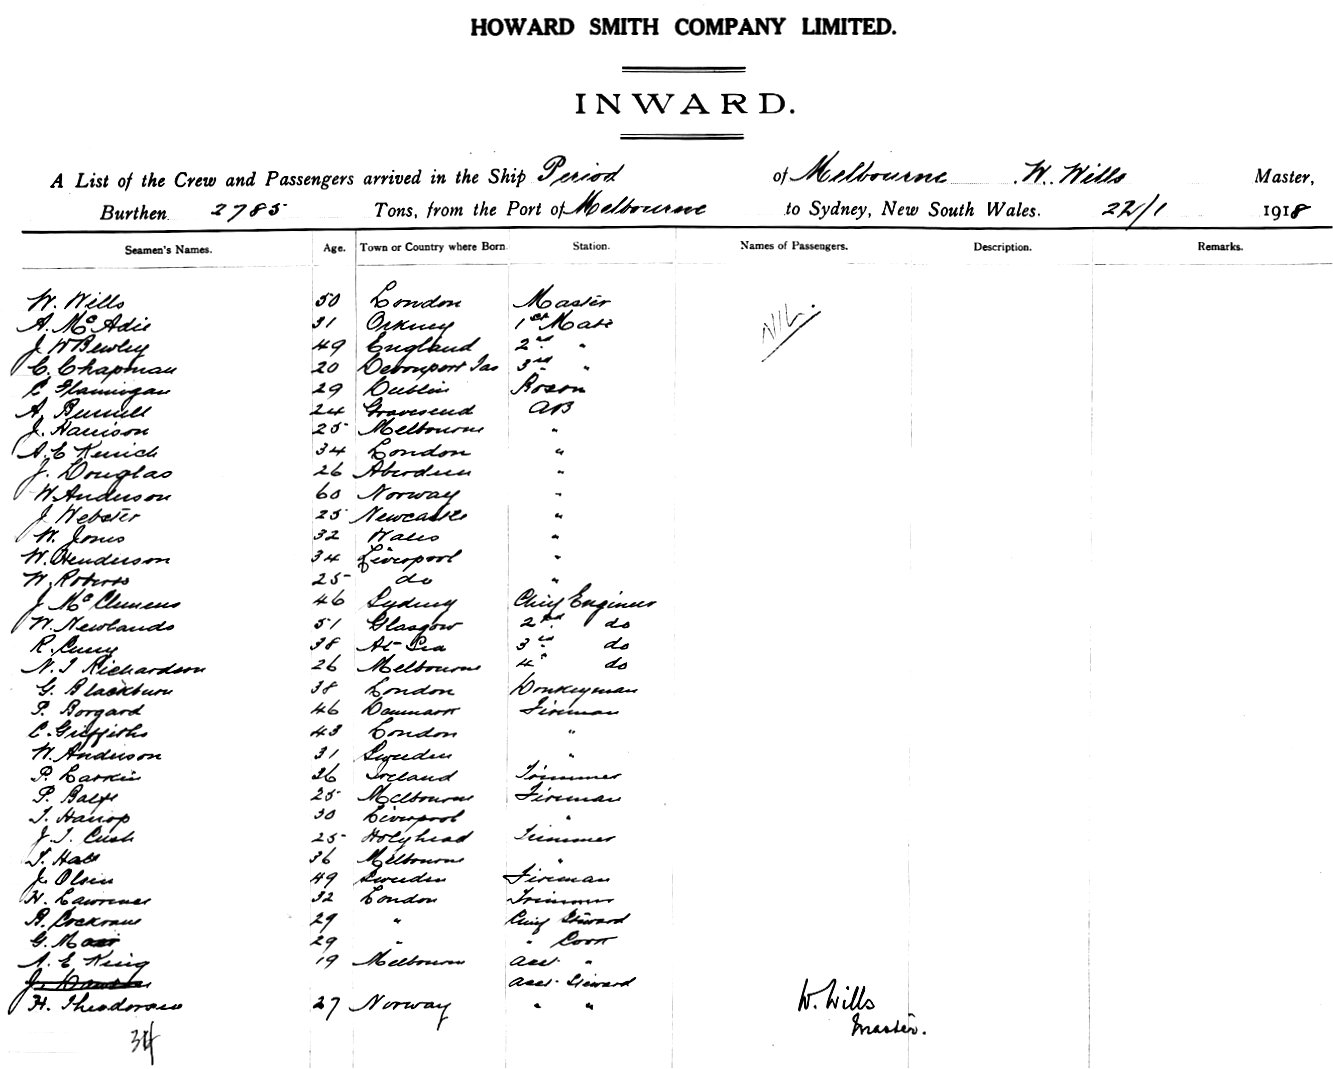 HOWARD SMITH COMPANY LIMITED.
INWARD.
A List of the Crew and Passengers arrived in the Ship Period of Melbourne W. Wills Master,
Burthen 2785 Tons, from the Port of Melbourne to Sydney, New South Wales. 22/1 1918
Seamen's Names. Age. Town or Country where Born. Station. Names of Passengers. Description. Remarks.
W. Wills 50 London Master NIL.
A. McAdie 31 Orkney 1st Mate
J W Bewley 49 England 2nd "
C. Chapman 20 Devonport Tas 3rd "
C Flannigan 29 Dublin Boson
A. Burnell 24 Gravesend AB
J. Harrison 25 Melbourne "
A. E 34 London "
J. Douglas 26 Aberdeen "
W. Anderson 60 Norway "
J Webster 25 Newcastle "
W. Jones 32 Wales "
W. Henderson 34 Liverpool "
W. Roberts 25 do "
J McClemens 46 Sydney Chief Engineer
W. Newlands 51 Glasgow 2nd do
R. Curry 38 At Sea 3rd do
N. J Richardson 26 Melbourne 4" do
G. Blackburn 38 London Donkeyman
P. Borgard 46 Danmark Fireman
C. Griffiths 43 London "
W. Anderson 31 Sweden "
P. Larkin 36 Ireland Trimmer
P. Balfe 25 Melbourne Fireman
T. Harrop 30 Liverpool "
J. T. Cush 25 Holyhead Trimmer
T. Hall 36 Melbourne "
J. Olsen 49 Sweden Fireman
H. Lawrence 32 London Trimmer
B. Cockrane 29 " Chief Steward
G. Mair 29 " " Cook
A. E King 19 Melbourne Asst. "
J. Asst. Steward
H. Theodorsen 27 Norway " " W. Wills
Master.
34